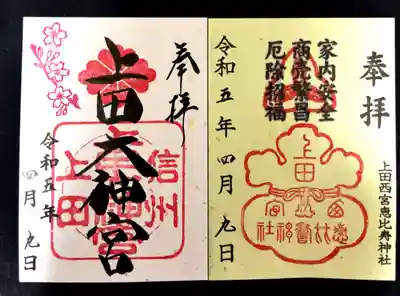 奉拝
上田大神宮
信州
上田
令和五年
四月九日
奉拝
家内安全
商売繁昌
厄除招福
上田西宮恵比寿神社
令和五年四月九日
上田